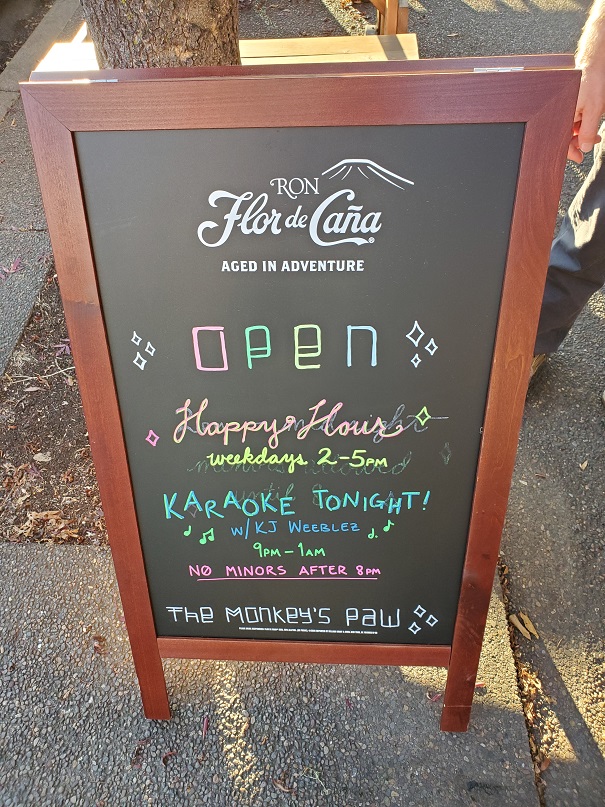 RON
Flor de Caña®
AGED IN ADVENTURE
OPEN
Happy Hour
weekdays 2-5PM
KARAOKE TONIGHT!
W/ KJ WEEBLEZ
9PM-1AM
NO MINORS AFTER 8PM
THE MONKEY'S PAW